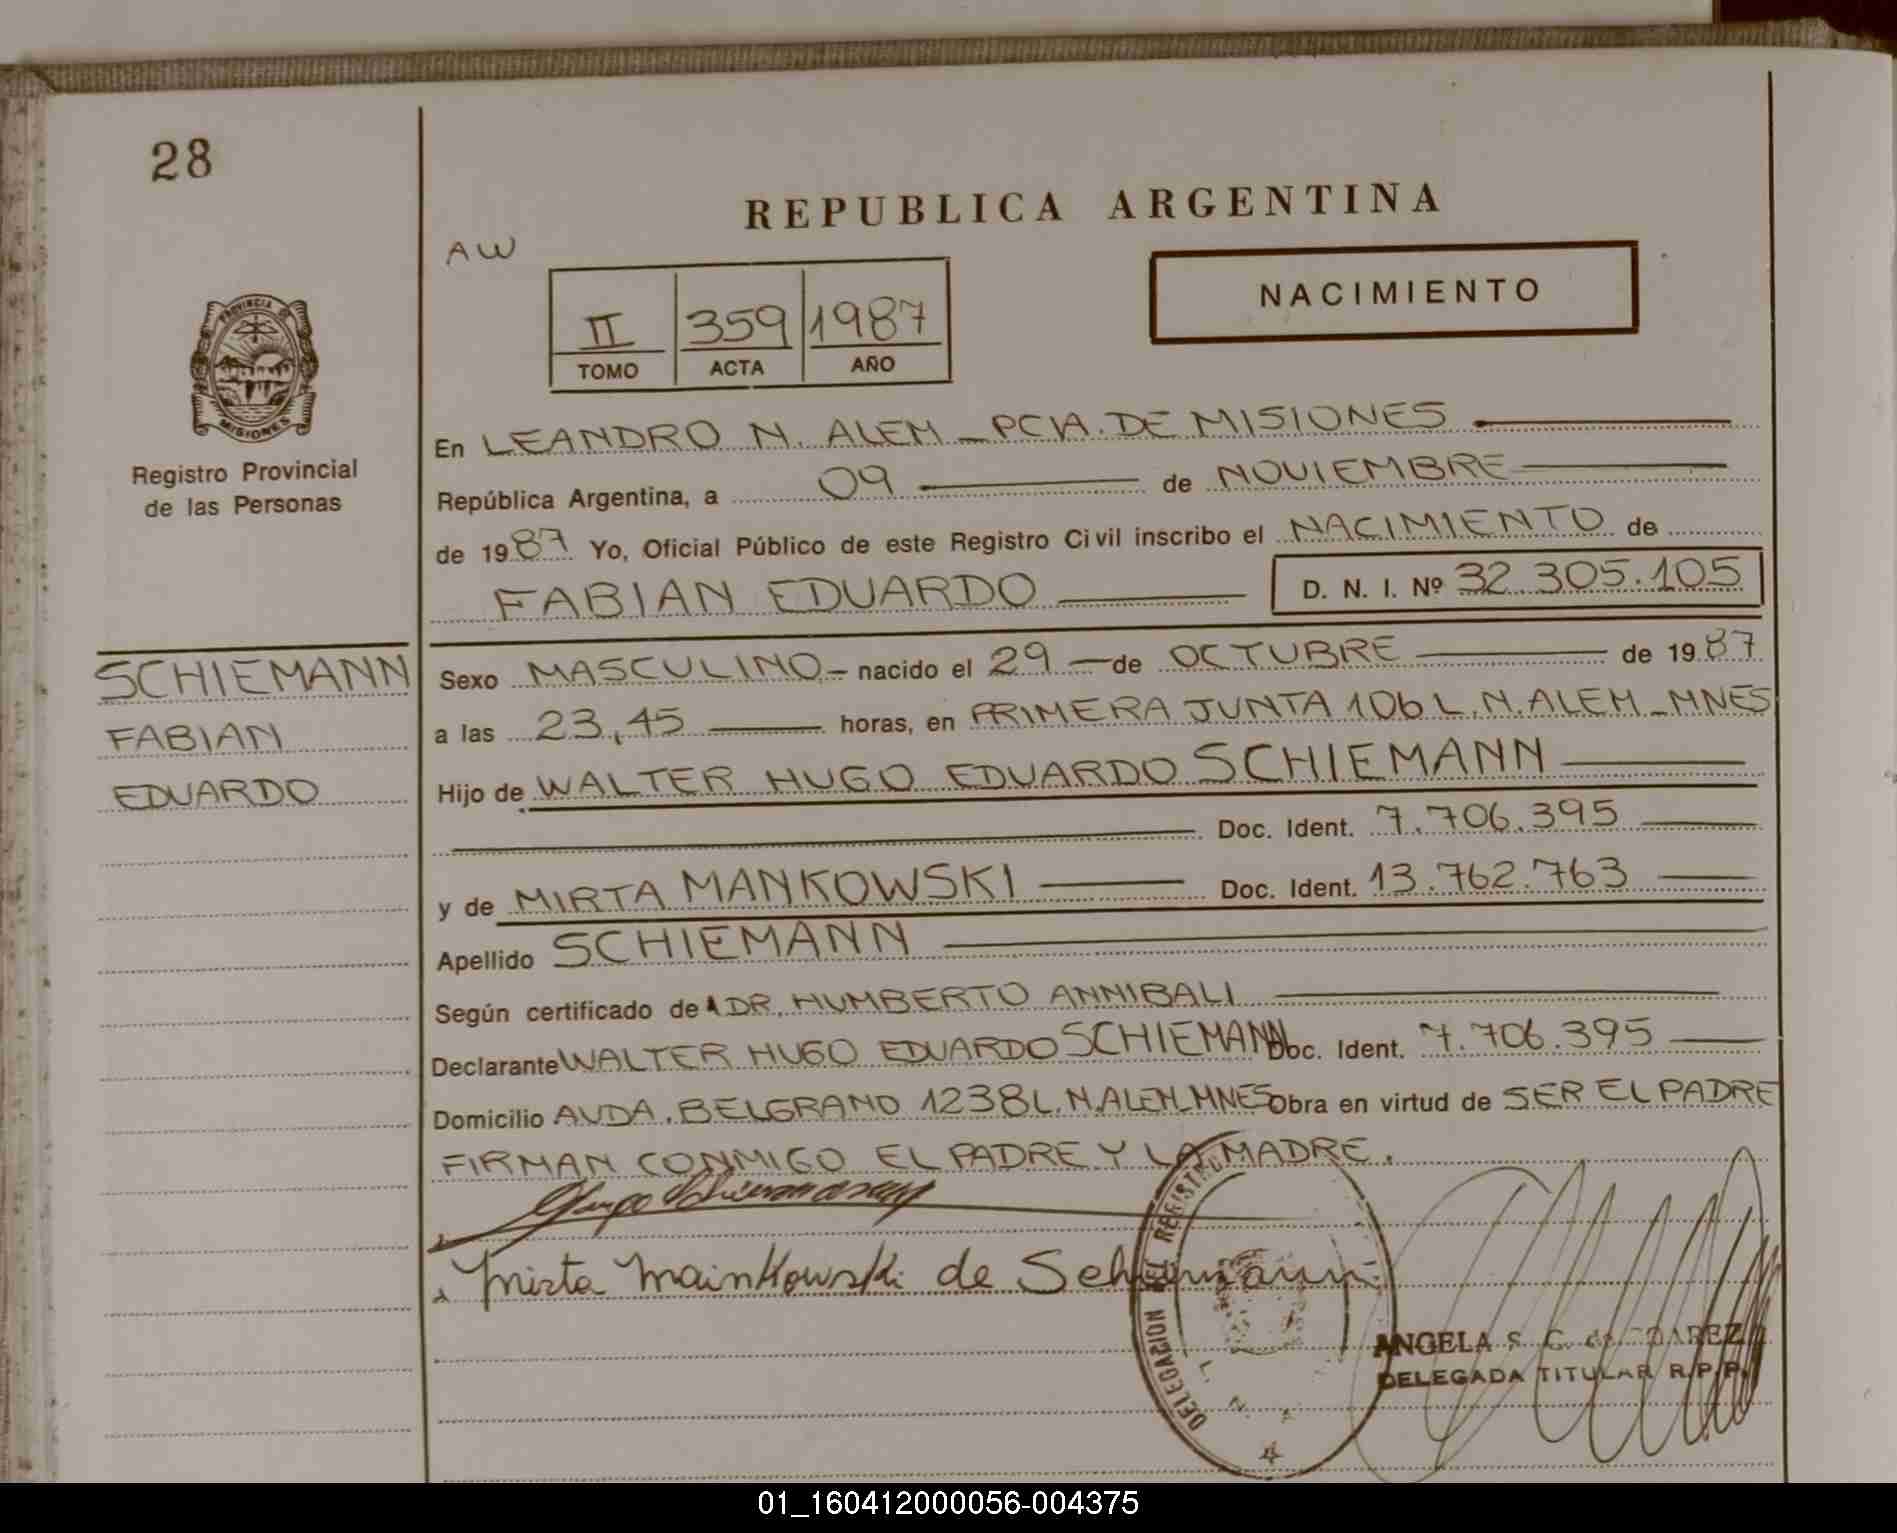 28
REPUBLICA ARGENTINA
AW
NACIMIENTO
II 359 1987
TOMO ACTA AÑO
PROVINCIA DE
MISIONES
Registro Provincial
de las Personas
En LEANDRO N. ALEM - PCIA. DE MISIONES
República Argentina, a 09 de NOVIEMBRE
de 1987 Yo, Oficial Público de este Registro Civil inscribo el NACIMIENTO de
FABIAN EDUARDO D. N. I. Nº 32.305.105
SCHIEMANN
FABIAN
EDUARDO
Sexo MASCULINO - nacido el 29 de OCTUBRE de 1987
a las 23,45 horas, en PRIMERA JUNTA 106 L.N.ALEM - MNES
Hijo de WALTER HUGO EDUARDO SCHIEMANN
Doc. Ident. 7.706.395
y de MIRTA MANKOWSKI Doc. Ident. 13.762.763
Apellido SCHIEMANN
Según certificado de DR. HUMBERTO ANNIBALI
Declarante WALTER HUGO EDUARDO SCHIEMANN Doc. Ident. 7.706.395
Domicilio AVDA. BELGRANO 1238 L.N.ALEM-MNES Obra en virtud de SER EL PADRE
FIRMAN CONMIGO EL PADRE Y LA MADRE.
Hugo Schiemann
Mirta Mainkowski de Schiemann
DELEGACION DEL REGISTRO
L. N. A.
ANGELA S. C. de SUAREZ
DELEGADA TITULAR R.P.P.
01_160412000056-004375